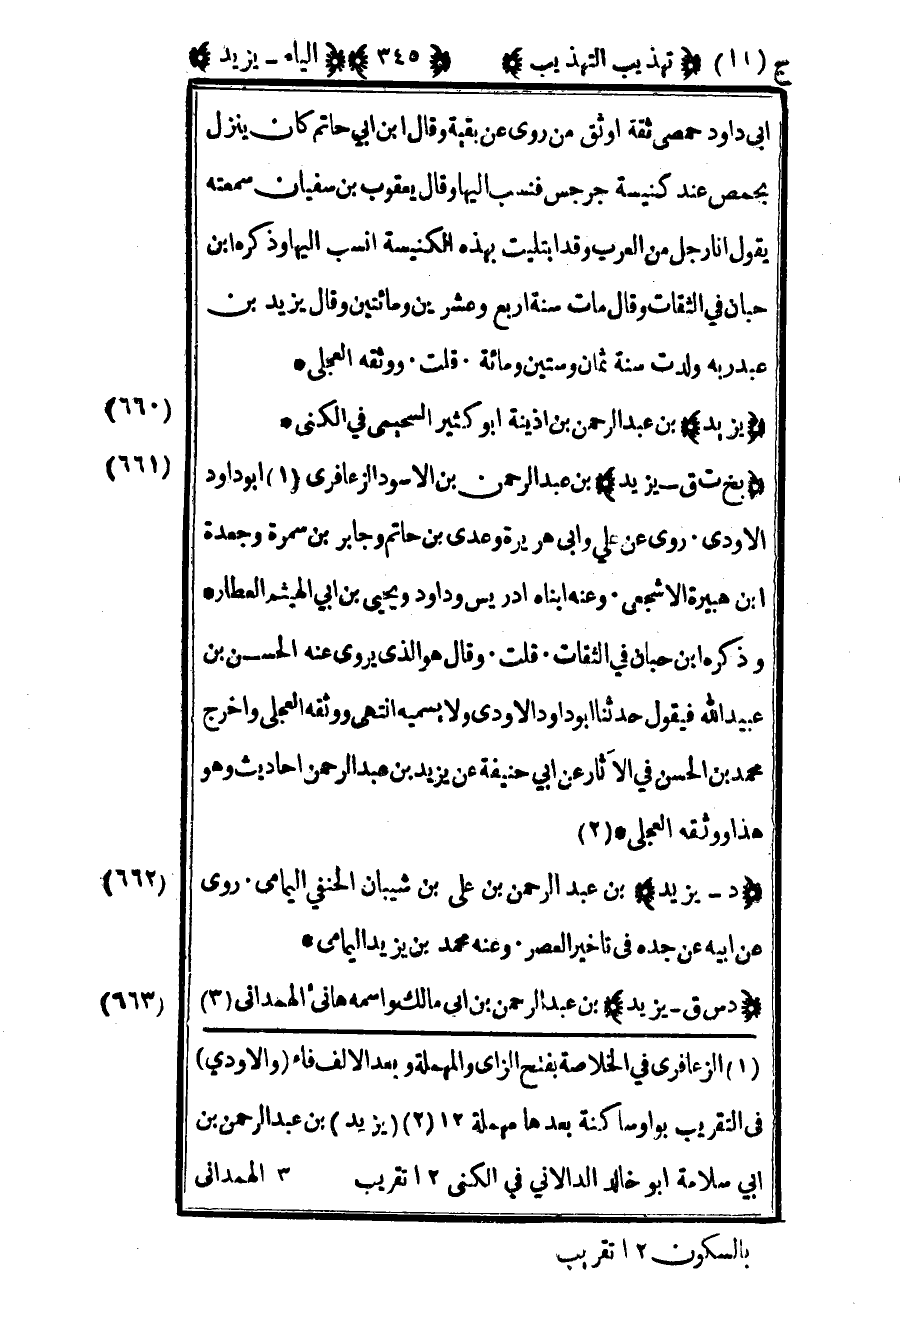 ج (١١) ﴿ تهذيب التهذيب ﴾ ﴿ ٣٤٥ ﴾ ﴿ الياء - يزيد ﴾
ابى داود حمصى ثقة اوثق من روى عن بقية وقال ابن ابي حاتم كان ينزل
بحمص عند كنيسة جرجس فنسب اليها وقال يعقوب بن سفيان سمعته
يقول انا رجل من العرب وقد ابتليت بهذه الكنيسة انسب اليها وذكره ابن
حبان في الثقات وقال مات سنة اربع وعشرين ومائتين وقال يزيد بن
عبد ربه ولدت سنة ثمان وستين ومائة · قلت · ووثقه العجلى *
﴿ يزيد ﴾ بن عبد الرحمن بن اذينة ابو كثير السحيمى في الكنى * (٦٦٠)
﴿ بخ ت ق - يزيد ﴾ بن عبد الرحمن بن الاسود الزعافرى (١) ابو داود (٦٦١)
الاودى · روى عن علي وابى هريرة وعدى بن حاتم وجابر بن سمرة وجعدة
ابن هبيرة الاشجعى · وعنه ابناه ادريس وداود ويحيى بن ابي الهيثم العطار *
وذكره ابن حبان في الثقات · قلت · وقال هو الذى يروى عنه الحسن بن
عبيد الله فيقول حدثنا ابو داود الاودى ولا يسميه انتهى ووثقه العجلى واخرج
محمد بن الحسن في الآثار عن ابي حنيفة عن يزيد بن عبد الرحمن احاديث وهو
هذا ووثقه العجلى * (٢)
﴿ د - يزيد ﴾ بن عبد الرحمن بن على بن شيبان الحنفي اليمامى · روى (٦٦٢)
عن ابيه عن جده فى تاخير العصر · وعنه محمد بن يزيد اليمامى *
﴿ د س ق - يزيد ﴾ بن عبد الرحمن بن ابى مالك واسمه هانئ الهمدانى (٣) (٦٦٣)
(١) الزعافرى في الخلاصة بفتح الزاى والمهملة وبعد الالف فاء (والاودي)
فى التقريب بواو ساكنة بعدها مهملة ١٢ (٢) (يزيد) بن عبد الرحمن بن
ابي سلامة ابو خالد الدالاني في الكنى ١٢ تقريب ٣ الهمدانى
بالسكون ١٢ تقريب